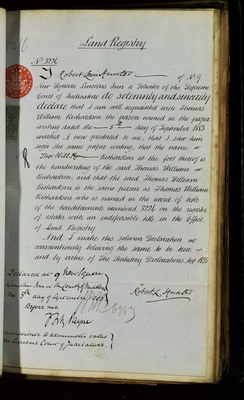 Land Registry
No. 3226
I Robert Hunter of No. 9
New Square Lincolns Inn a Solicitor of the Supreme
Court of Judicature do solemnly and sincerely
declare that I am well acquainted with Thomas
William Richardson the person named in the paper
writing dated the 5th day of September 1885
marked A now produced to me, that I saw him
sign the same paper writing, that the name
Thos Will Richardson at the foot thereof is
the handwriting of the said Thomas William
Richardson, and that the said Thomas William
Richardson is the same person as Thomas William
Richardson who is named in the record of title
of the hereditaments numbered 3226 on the register
of estates with an indefeasible title in the Office
of Land Registry
And I make this solemn Declaration
conscientiously believing the same to be true
and by virtue of The Statutory Declarations Act 1835
Declared at 9 New Square
Lincolns Inn in the County of Middlesex
this 5th day of September 1885
Before me
Robert L Hunter
Payne
Commissioner to administer oaths
the Supreme Court of Judicature